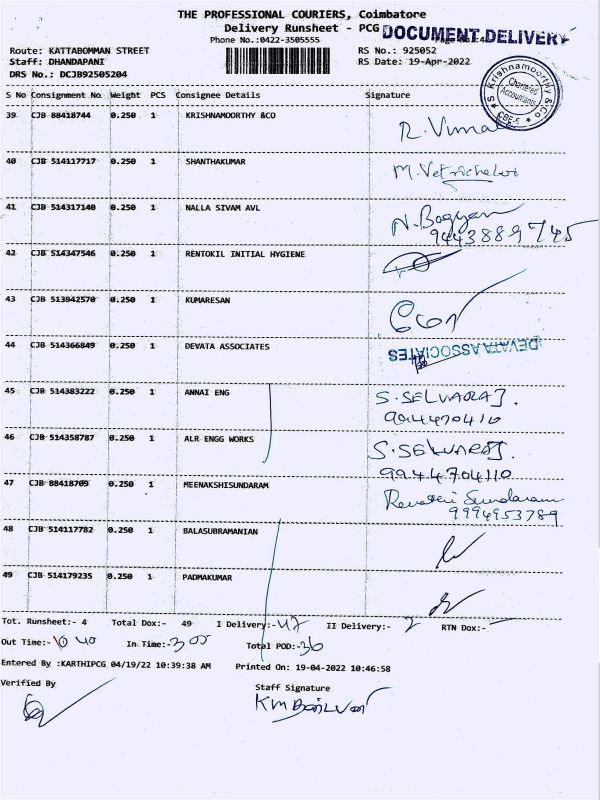 THE PROFESSIONAL COURIERS, Coimbatore
Delivery Runsheet - PCG
DOCUMENT.DELIVERY
Phone No.:0422-3505555
Route: KATTABOMMAN STREET
RS No.: 925052
Staff: DHANDAPANI
RS Date: 19-Apr-2022
DRS No.: DCJB92505204
S Krishnamoorthy & Co
Chartered Accountants
CBE-6
S No Consignment No Weight PCS Consignee Details Signature
39 CJB 88418744 0.250 1 KRISHNAMOORTHY &CO
40 CJB 514117717 0.250 1 SHANTHAKUMAR
41 CJB 514317140 0.250 1 NALLA SIVAM AVL
42 CJB 514347546 0.250 1 RENTOKIL INITIAL HYGIENE
43 CJB 513942570 0.250 1 KUMARESAN
44 CJB 514366849 0.250 1 DEVATA ASSOCIATES DEVATA ASSOCIATES
45 CJB 514383222 0.250 1 ANNAI ENG S.SELVARAJ.
46 CJB 514358787 0.250 1 ALR ENGG WORKS S.SELVARAJ.
9944704110
47 CJB 88418709 0.250 1 MEENAKSHISUNDARAM
9994953789
48 CJB 514117782 0.250 1 BALASUBRAMANIAN
49 CJB 514179235 0.250 1 PADMAKUMAR
Tot. Runsheet:- 4 Total Dox:- 49 I Delivery:- 47 II Delivery:- 2 RTN Dox:-
Out Time:- 10 40 In Time:- 3 05 Total POD:- 36
Entered By :KARTHIPCG 04/19/22 10:39:38 AM Printed On: 19-04-2022 10:46:58
Verified By
Staff Signature